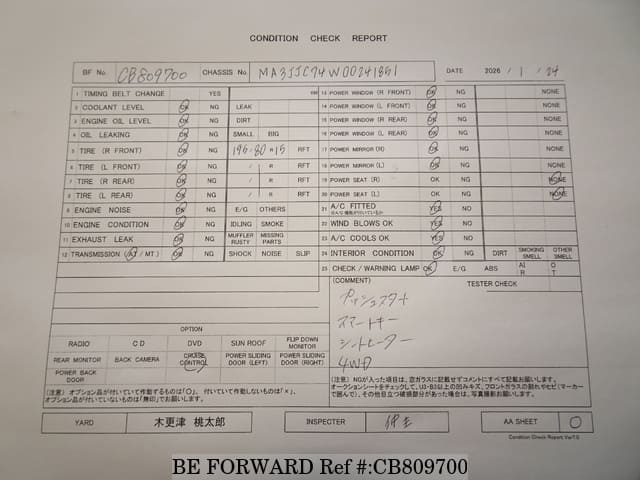 CONDITION CHECK REPORT
BF No. CB809700 CHASSIS No. MA3JJC74W00241851 DATE 2026 / 1 / 24
1 TIMING BELT CHANGE YES KM
2 COOLANT LEVEL OK NG LEAK
3 ENGINE OIL LEVEL OK NG DIRT
4 OIL LEAKING OK NG SMALL BIG
5 TIRE (R FRONT) OK NG 195-80×15 RFT
6 TIRE (L FRONT) OK NG / R RFT
7 TIRE (R REAR) OK NG / R RFT
8 TIRE (L REAR) OK NG / R RFT
9 ENGINE NOISE OK NG E/G OTHERS
10 ENGINE CONDITION OK NG IDLING SMOKE
11 EXHAUST LEAK OK NG MUFFLER RUSTY MISSING PARTS
12 TRANSMISSION (AT / MT) OK NG SHOCK NOISE SLIP
13 POWER WINDOW (R FRONT) OK NG NONE
14 POWER WINDOW (L FRONT) OK NG NONE
15 POWER WINDOW (R REAR) OK NG NONE
16 POWER WINDOW (L REAR) OK NG NONE
17 POWER MIRROR (R) OK NG NONE
18 POWER MIRROR (L) OK NG NONE
19 POWER SEAT (R) OK NG NONE
20 POWER SEAT (L) OK NG NONE
21 A/C FITTED YES NG
22 WIND BLOWS OK YES NG
23 A/C COOLS OK YES NG
24 INTERIOR CONDITION OK NG DIRT SMOKING SMELL OTHER SMELL
25 CHECK / WARNING LAMP OK E/G ABS AIR OT
(COMMENT) TESTER CHECK
プッシュスタート
スマートキー
シートヒーター
4WD
OPTION
RADIO CD DVD SUN ROOF FLIP DOWN MONITOR
REAR MONITOR BACK CAMERA CRUISE CONTROL POWER SLIDING DOOR (LEFT) POWER SLIDING DOOR (RIGHT)
POWER BACK DOOR
(注意) オプション品が付いていて作動するものは「○」、付いていて作動しないものは「×」、
オプション品が付いていないものは「無印」でお願いします。
(注意) NGが入った項目は、空ガラスに記載せずコメントにすべて記載お願いします。
オークションシートをチェックして、U3・B3以上の凹みキズ、フロントガラスの割れやヒビ(マーカー
で囲んで)、その他目立つ破損部分があった場合は、写真撮影お願いします。
YARD 木更津 桃太郎 INSPECTER AA SHEET ○
Condition Check Report Ver7.0
BE FORWARD Ref #:CB809700